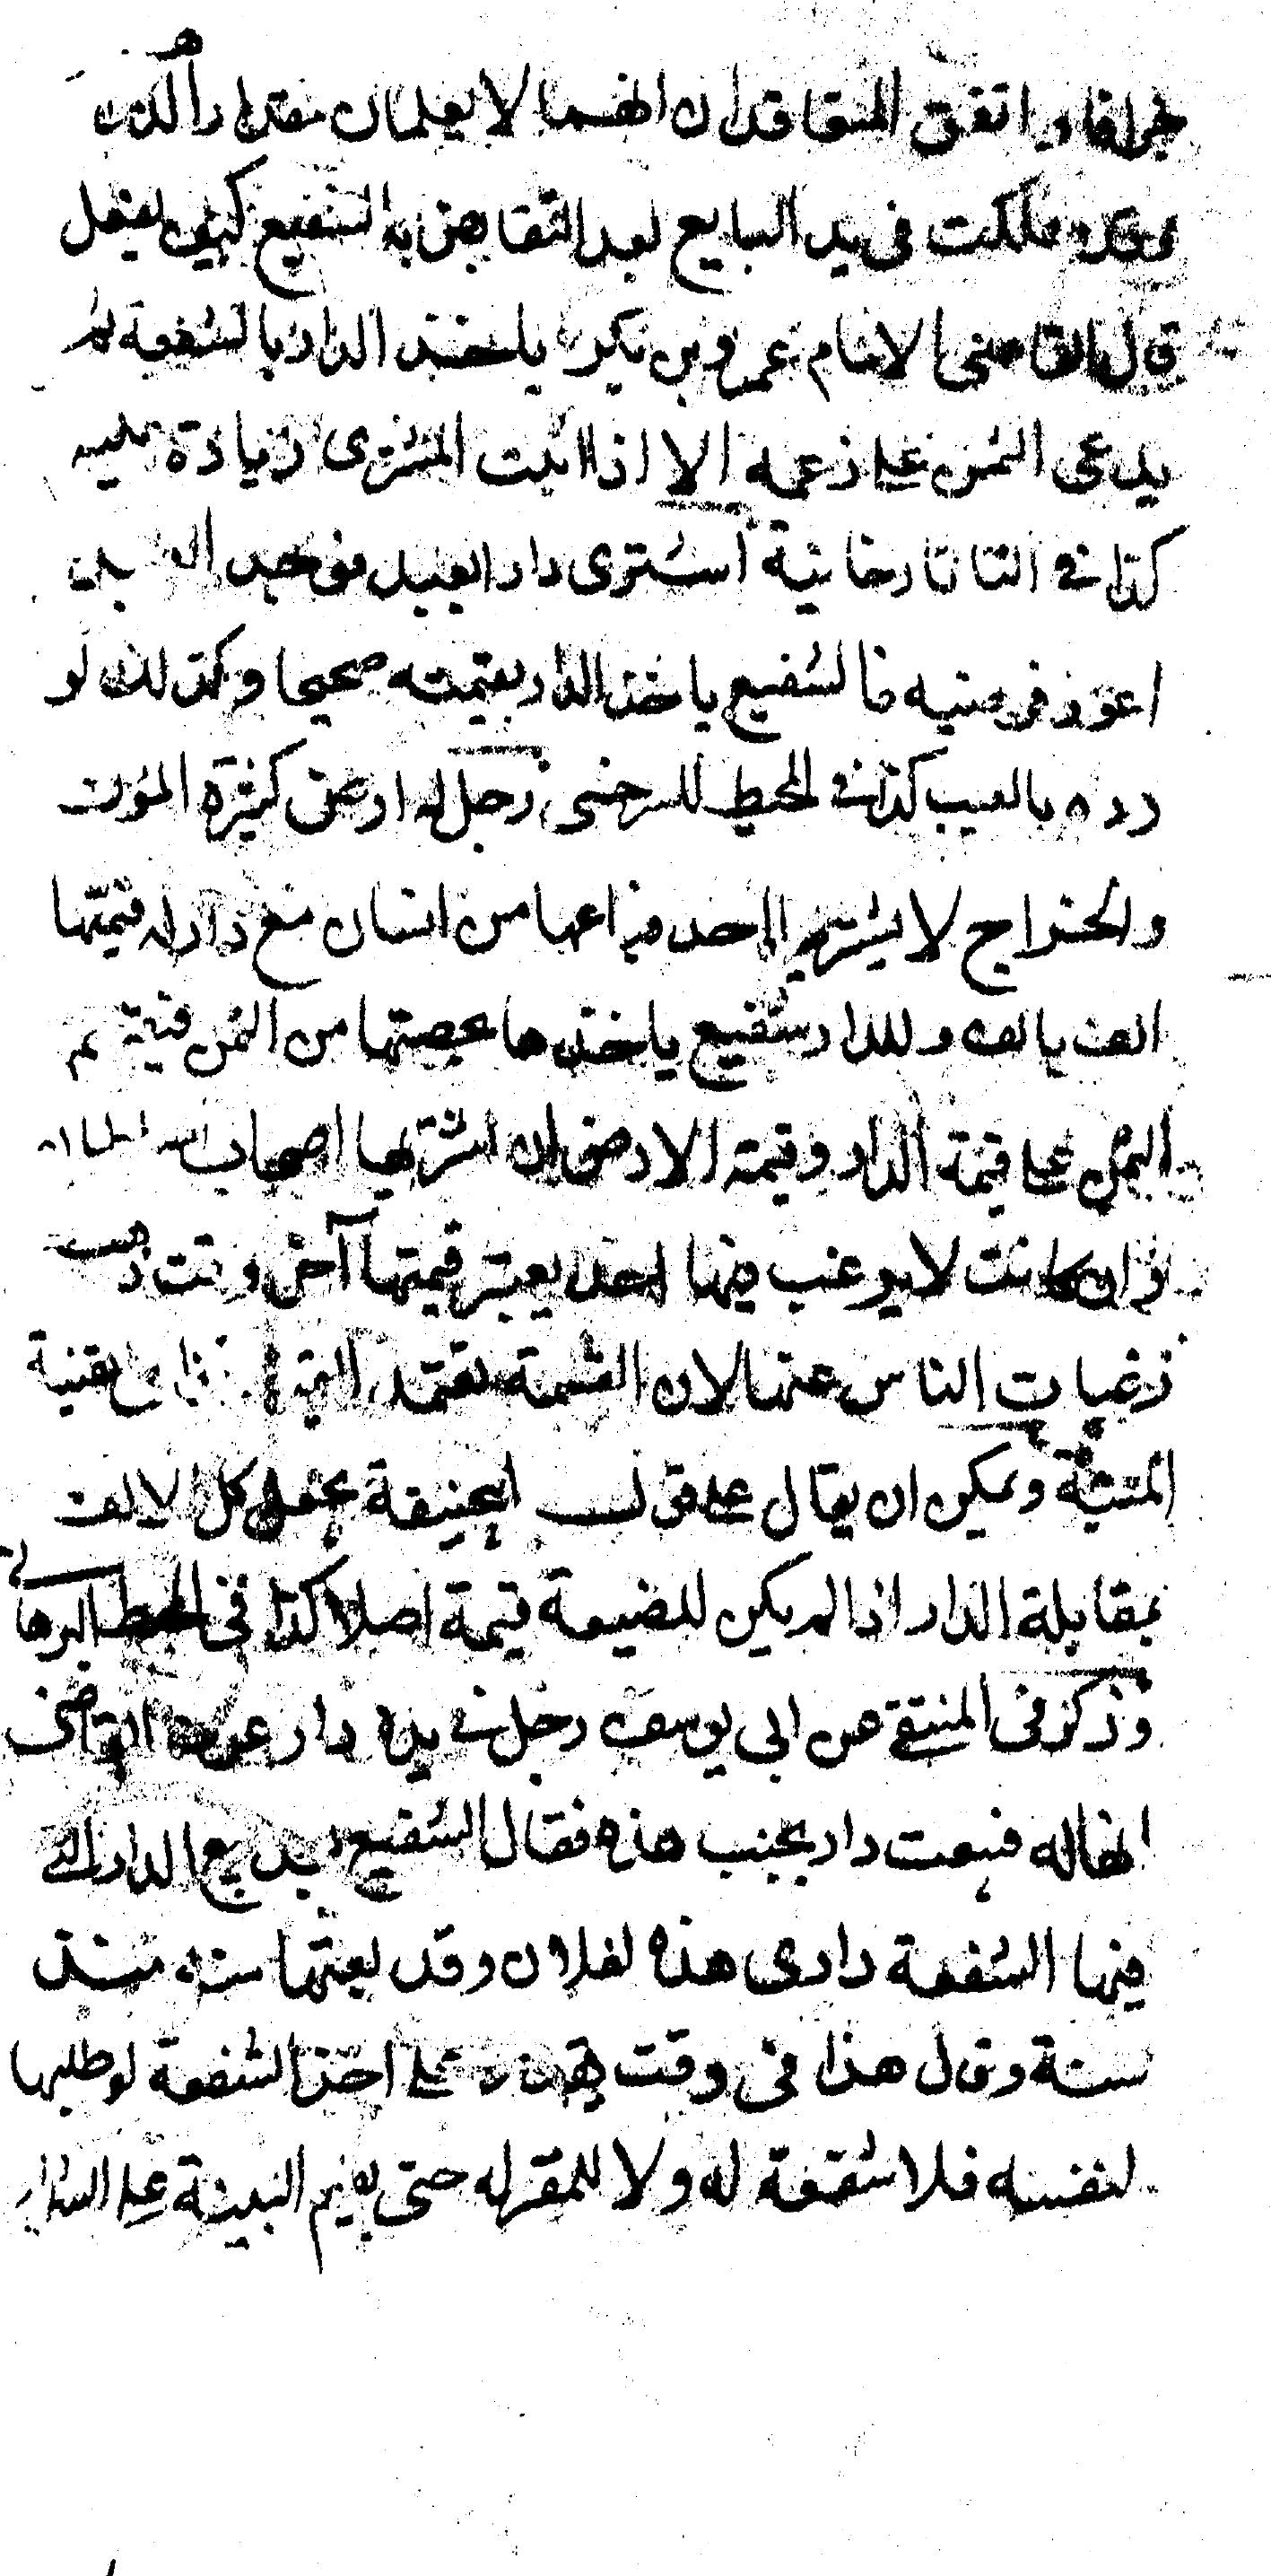 جزافا واتفق المتعاقدان انهما لا يعلمان مقدار الذهب
وقد هلكت في يد البايع بعد التقابض فالشفيع كيف يفعل
قال القاضي الامام عمر وبن بكر ياخذ الدار بالشفعة ثم
يدعى الثمن على زعمه الا اذا اثبت المشترى زيادة عليه
كذا في التاتارخانية اشترى دارا بعبد فوجد العبد
اعور فرضيه فالشفيع ياخذ الدار بقيمته صحيحا وكذلك لو
رده بالعيب كذا في المحيط للسرخسي رجل له ارض كثيرة المؤن
والخراج لا يشتريها احد فباعها من انسان مع دار له قيمتها
الف بالف وللدار شفيع ياخذها بحصتها من الثمن فيقسم
الثمن على قيمة الدار وقيمة الارض ان اشتريها اصحاب السلطان
وان كانت لا يرغب فيها احد يعتبر قيمتها آخر وقت ذهبت
رغبات الناس عنها لان القسمة تعتمد القيمة بقنية
المنية ويمكن ان يقال على قول ابي حنيفة يجعل كل الالف
بمقابلة الدار اذا لم يكن للضيعة قيمة اصلا كذا في المحيط البرهاني
وذكر في المنتقى عن ابي يوسف رجل في يده دار عرف القاضي
انها له فبيعت دار بجنب هذه فقال الشفيع بعد بيع الدار التي
فيها الشفعة دارى هذه لفلان وقد بعتها منه منذ
سنة وقال هذا في وقت يقدر على اخذ الشفعة لو طلبها
لنفسه فلا شفعة له ولا للمقر له حتى يقيم البينة على الشراء